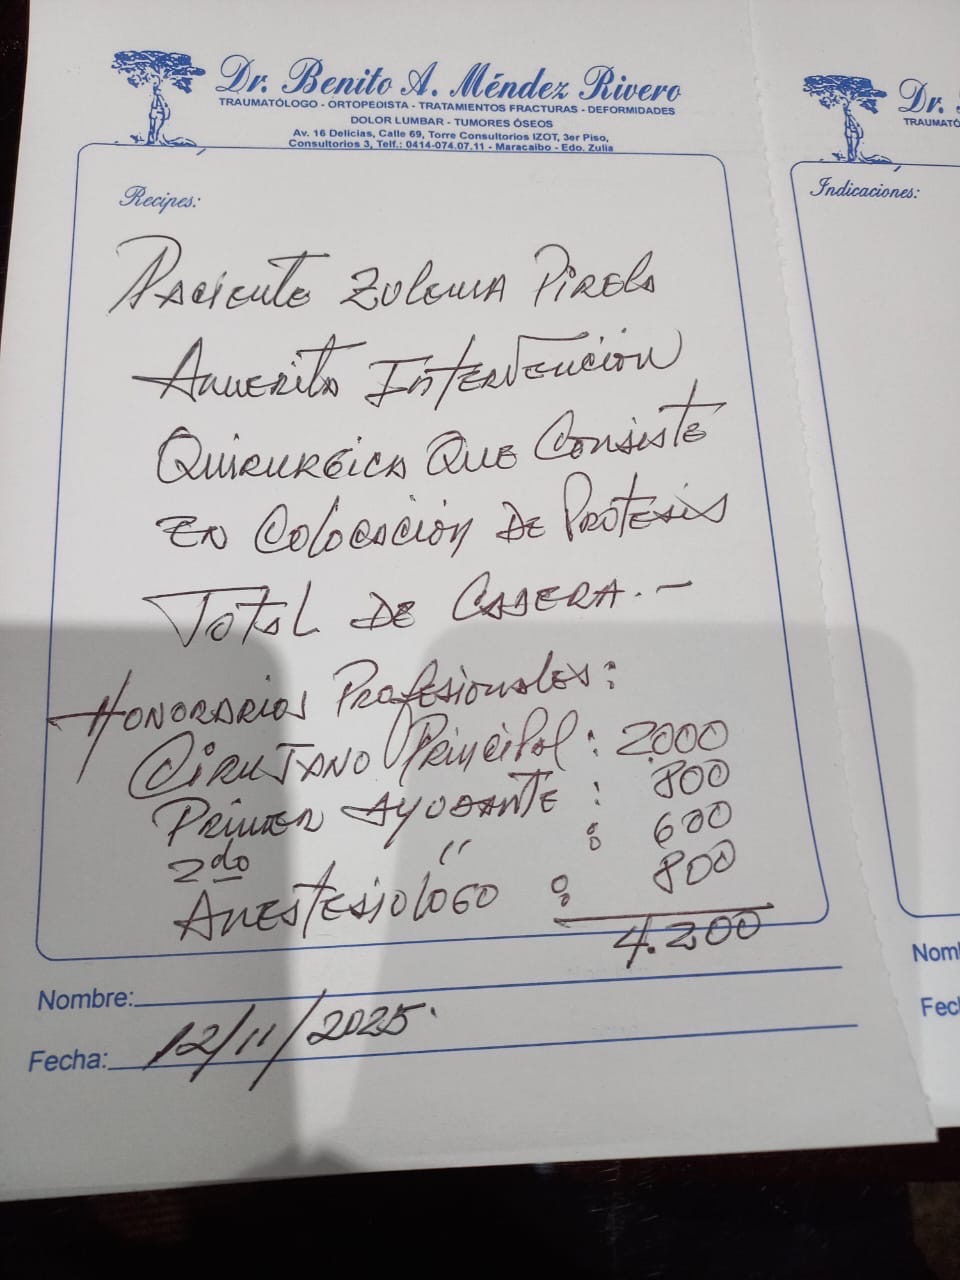 Dr. Benito A. Méndez Rivero
TRAUMATÓLOGO - ORTOPEDISTA - TRATAMIENTOS FRACTURAS - DEFORMIDADES
DOLOR LUMBAR - TUMORES ÓSEOS
Av. 16 Delicias, Calle 69, Torre Consultorios IZOT, 3er Piso,
Consultorios 3, Telf.: 0414-074.07.11 - Maracaibo - Edo. Zulia
Recipes:
Paciente Zulema Pirela
Amerita Intervención
Quirurgica Que Consiste
En Colocación De Protesis
Total De Cadera.-
Honorarios Profesionales:
Cirujano Principal: 2.000
Primer Ayudante: 800
2do " : 600
Anestesiólogo : 800
4.200
Nombre:
Fecha: 12/11/2025.
Dr.
TRAUMATÓ
Indicaciones:
Nom
Fec